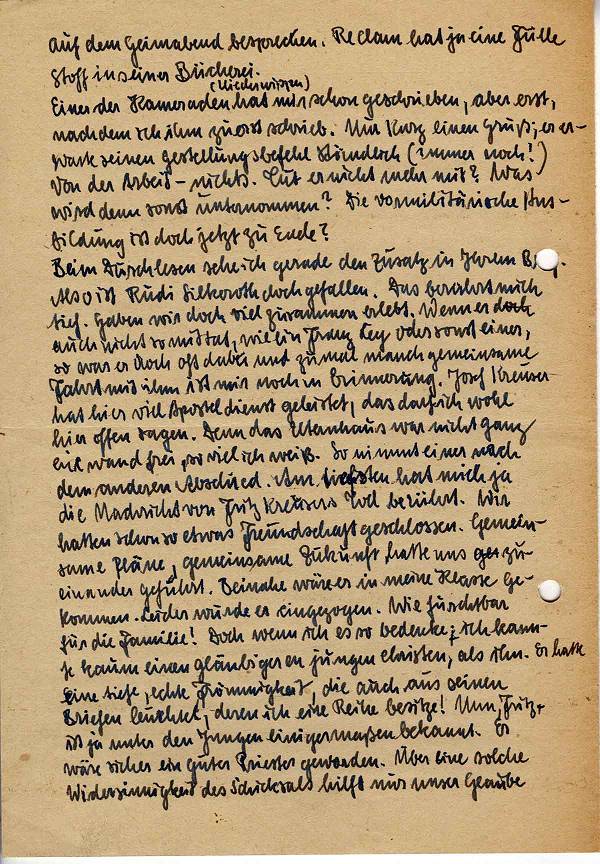 auf dem Heimabend besprechen. Reclam hat ja eine Fülle
Stoff in seiner Bücherei.
(Niederwippen)
Einer der Kameraden hat mir schon geschrieben, aber erst,
nachdem ich ihm zuerst schrieb. Nur kurz einen Gruß; er er-
warte seinen Gestellungsbefehl stündlich (immer noch!)
Von der Arbeit – nichts. Tut er nicht mehr mit? Was
wird denn sonst unternommen? Die vormilitärische Aus-
bildung ist doch jetzt zu Ende?
Beim Durchlesen sehe ich gerade den Zusatz in Ihrem
Also ist Rudi Silkoroth doch gefallen. Das berührt mich
tief. Haben wir doch viel zusammen erlebt. Wenn er doch
auch nicht so mittat, wie ein Franz Key oder sonst einer,
so war er doch oft dabei und zumal manch gemeinsame
Fahrt mit ihm ist mir noch in Erinnerung. Josef Kreuser
hat hier viel Aposteldienst geleistet, das darf ich wohl
hier offen sagen. Denn das Elternhaus war nicht ganz
einwandfrei, so viel ich weiß. So nimmt einer nach
dem anderen Abschied. Am tiefsten hat mich ja
die Nachricht von Fritz Kreusers Tod berührt. Wir
hatten schon so etwas Freundschaft geschlossen. Gemein-
same Pläne, gemeinsame Zukunft hatte uns zu-
einander geführt. Beinahe wäre er in meine Klasse ge-
kommen. Leider wurde er eingezogen. Wie furchtbar
für die Familie! Doch wenn ich es so bedenke; ich kann-
te kaum einen gläubigeren jungen Christen, als ihn. Er hatte
eine tiefe, echte Frömmigkeit, die auch aus seinen
Briefen leuchtet, deren ich eine Reihe besitze! Nun, Fritz
ist ja unter den Jungen einigermaßen bekannt. Er
wäre sicher ein guter Priester geworden. Über eine solche
Widersinnigkeit des Schicksals hilft nur unser Glaube